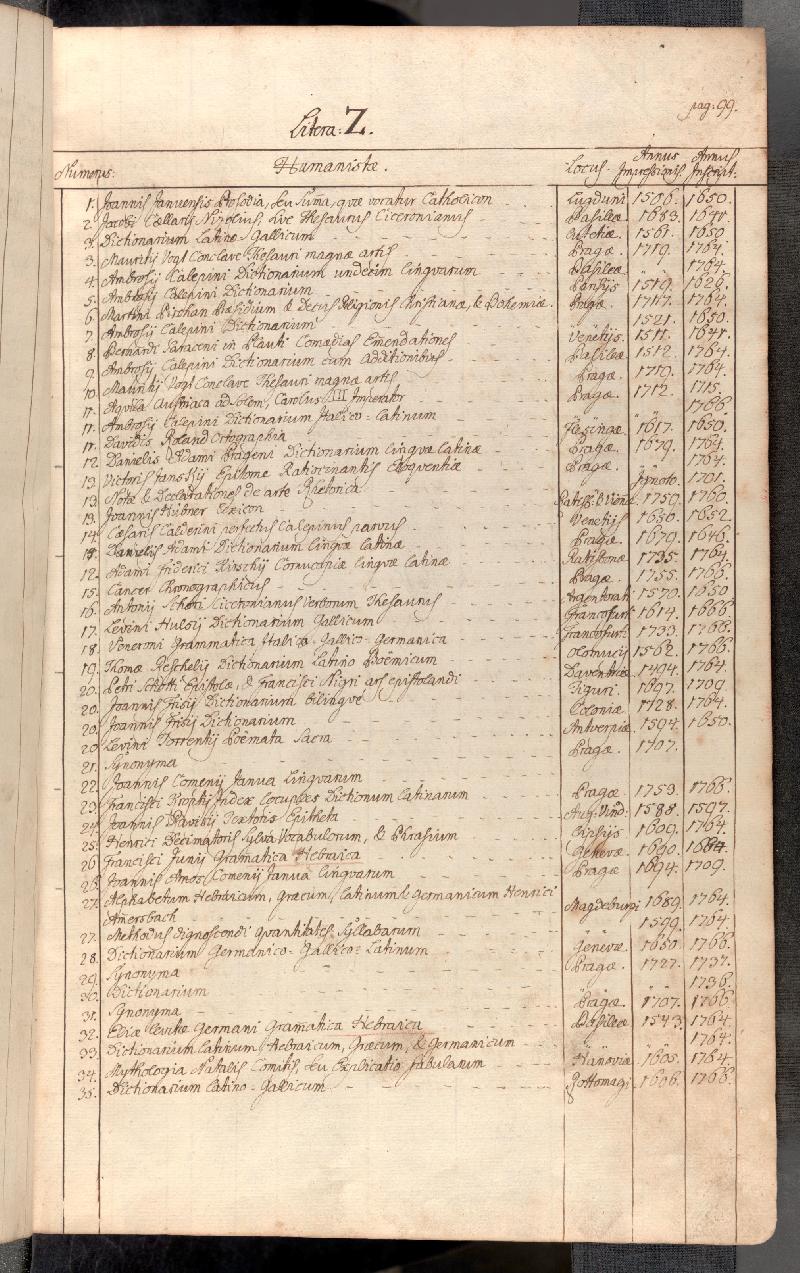 pag: 99.
Litera: Z.
Numerus: Humanistæ. Locus. Annus Impressionis Annus Inscript:
1. Joannis Januensis Prosodia, seu Suma, quæ vocatur Catholicon Lugduni 1506. 1650.
2. Jacobi Cellarij Nizolius, sive Thesaurus Ciceronianus Basileæ. 1583. 1641.
2. Dictionarium Latino Gallicum Lutetiæ 1561. 1650
3. Mauritij Vogt Conclave Thesauri magnæ artis Pragæ 1719. 1764.
4. Ambrosij Kalepini Dictionarium undecim Linguarum Basileæ " 1764.
5. Ambrosij Calepini Dictionarium Parisijs 1519. 1629.
6. Martini Præsidium & Decus Religionis Christianæ, & Bohemiæ. Pragæ. 1717. 1764.
7. Ambrosij Calepini Dictionarium 1521. 1650.
8. Bernardi Saraceni in Plauti Comædias Emendationes Venetijs 1511. 1641.
9. Ambrosij Calepini Dictionarium cum additionibus Basileæ 1512. 1764.
10. Mauritij Vogt Conclave Thesauri magnæ artis Pragæ. 1719. 1764.
11. Aqvila Austriaca ad Solem, Carolus III Imperator Pragæ. 1712. 1715.
11. Ambrosij Calepini Dictionarium Italico-Latinum " 1766.
11. Davidis Roland Ortographia 1617. 1650.
12. Danielis Adami Prageni Dictionarium Linguæ Latinæ Pragæ. 1679. 1764.
13. Victoris Jansky Epitome Ratiocinantis Eloquentiæ Pragæ. 1764.
13. Notæ & Declarationes de arte Rhetorica " Ignoto. 1701.
13. Joannis Hübner Lexicon Ratisb: & Vienæ. 1750. 1760.
14. Cæsaris Calderini perfectus Calepinus parvus Venetijs 1650. 1652.
11. Danielis Adami Dictionarium linguæ latinæ Pragæ 1679. 1646.
12. Adami Friderici Kirschij Cornucopiæ Linguæ Latinæ Ratisbonæ 1735. 1764.
15. Cancer Chronographicus Pragæ. 1755. 1766.
16. Antonij Schori Ciceronianus verborum Thesaurus Argentorati 1570. 1650
17. Levini Hulsij Dictionarium Gallicum Francofurti 1614. 1666.
18. Veneroni Grammatica Italico-Gallico-Germanica Francofurti 1733. 1766.
19. Thomæ Reschelij Dictionarium Latino Boëmicum Olomucij 1562. 1766.
20. Petri Schotti Epistolæ, & Francisci Nigri ars epistolandi Daventriæ 1494. 1764.
20. Joannis Frisij Dictionarium bilingve Tiguri. 1697. 1709.
20. Joannis Frisij Dictionarium Coloniæ 1728. 1764.
20 Levini Torrentij Poëmata Sacra Antverpiæ 1594. 1650.
21. Synonyma Pragæ. 1707.
22. Joannis Comenij Janua Linguarum
23. Francisci Index Locuples Dictionum Latinarum Pragæ. 1753. 1766.
24. Joannis Ravisij Textoris Epitheta Aug: Vind: 1588. 1597.
25. Henrici Decimatoris Sylva Vocabulorum, & Phrasium Lipsijs 1609. 1764.
26 Francisci Junij Gramatica Hebraica Genevæ 1690. 1664.
26. Joannis Amos Comenij Janua Linguarum Pragæ 1694. 1709.
27. Alphabetum Hebraicum, Græcum, Latinum & Germanicum Henrici
Amersbach Magdeburgi 1689. 1764.
27. Methodus dignoscendi quantitates Syllabarum " 1599. 1764.
28. Dictionarium Germanico-Gallico-Latinum Genevæ 1650. 1766.
29. Synonyma Pragæ. 1727. 1737.
30. Dictionarium " " 1736.
31. Synonyma Pragæ. 1707. 1766
32. Eliæ Levitæ Germani Gramatica Hebraica Basileæ 1543. 1764.
33. Dictionarium Latinum, Hebraicum, Græcum, & Germanicum " " 1764.
34. Mythologia Natalis Comitis, seu Explicatio fabularum Hanoviæ 1605. 1764.
35. Dictionarium Latino-Gallicum Rottomagi 1606. 1766.